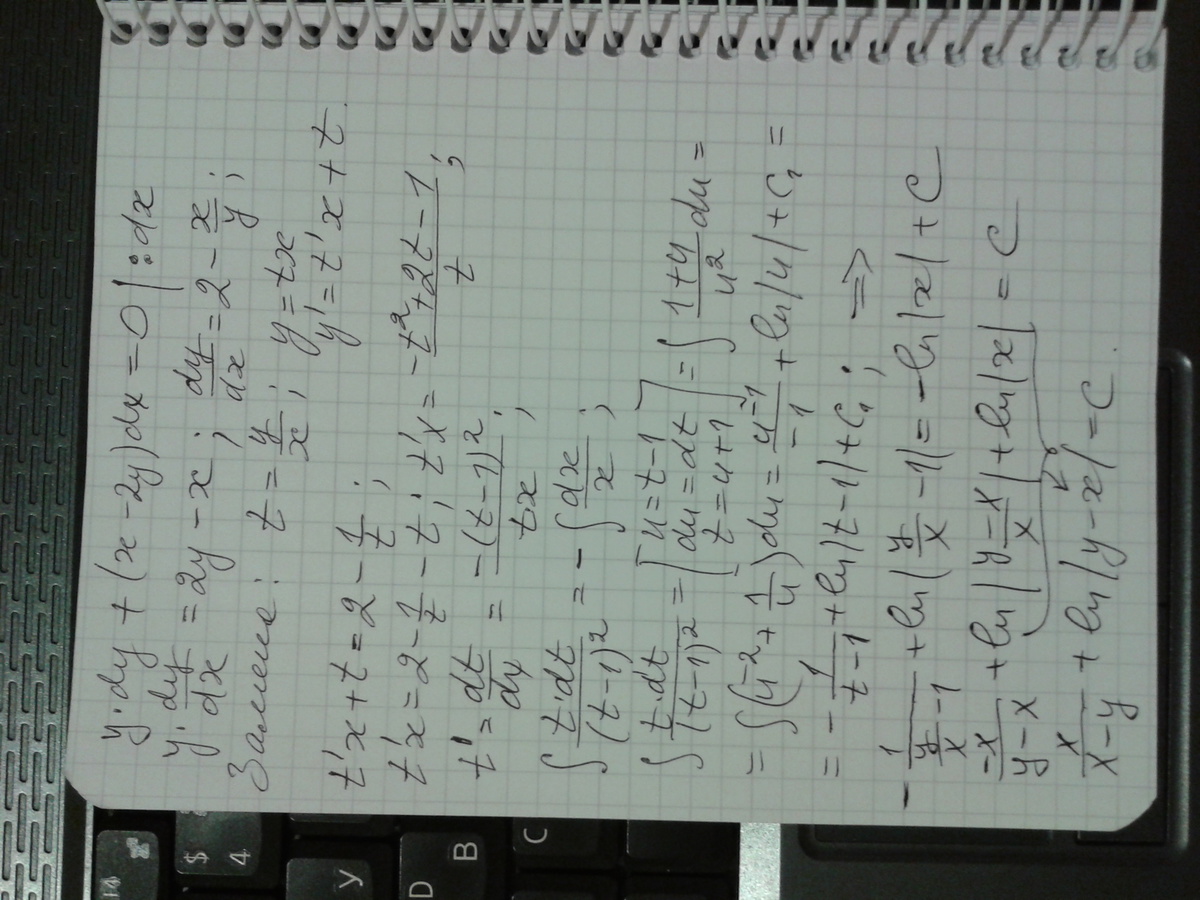 y·dy + (x - 2y)dx = 0 | :dx
y·dy/dx = 2y - x; dy/dx = 2 - x/y;
Замена: t = y/x; y = tx
y' = t'x + t
t'x + t = 2 - 1/t;
t'x = 2 - 1/t - t; t'x = (-t²+2t-1)/t;
t' = dt/dx = -(t-1)²/tx;
∫ t·dt/(t-1)² = -∫ dx/x;
∫ t·dt/(t-1)² = [u=t-1
du=dt
t=u+1] = ∫ (1+u)/u² du =
= ∫(u⁻² + 1/u)du = u⁻¹/-1 + ln|u| + C₁ =
= -1/(t-1) + ln|t-1| + C₁; ⇒
-1/(y/x - 1) + ln|y/x - 1| = -ln|x| + C
-x/(y-x) + ln|(y-x)/x| + ln|x| = C
x/(x-y) + ln|y-x| = C.
$
4
У
B
D
C